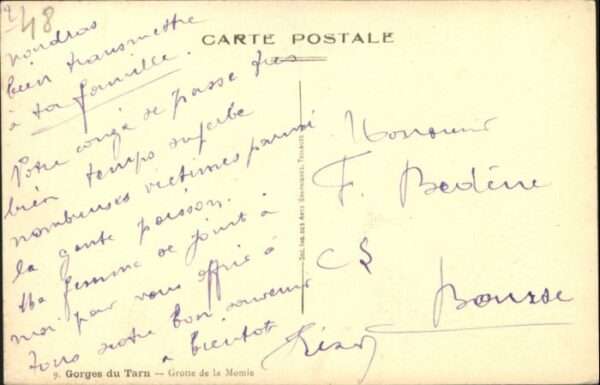 2
48
CARTE POSTALE
voudras
bien transmettre
à ta famille.
Notre congé se passe très
bien temps superbe
nombreuses victimes parmi
la gente poisson.
Ma femme se joint à
moi pour vous offrir à
tous notre bon souvenir
à bientôt
Monsieur
F. Bedène
Bourse
9. Gorges du Tarn — Grotte de la Momie